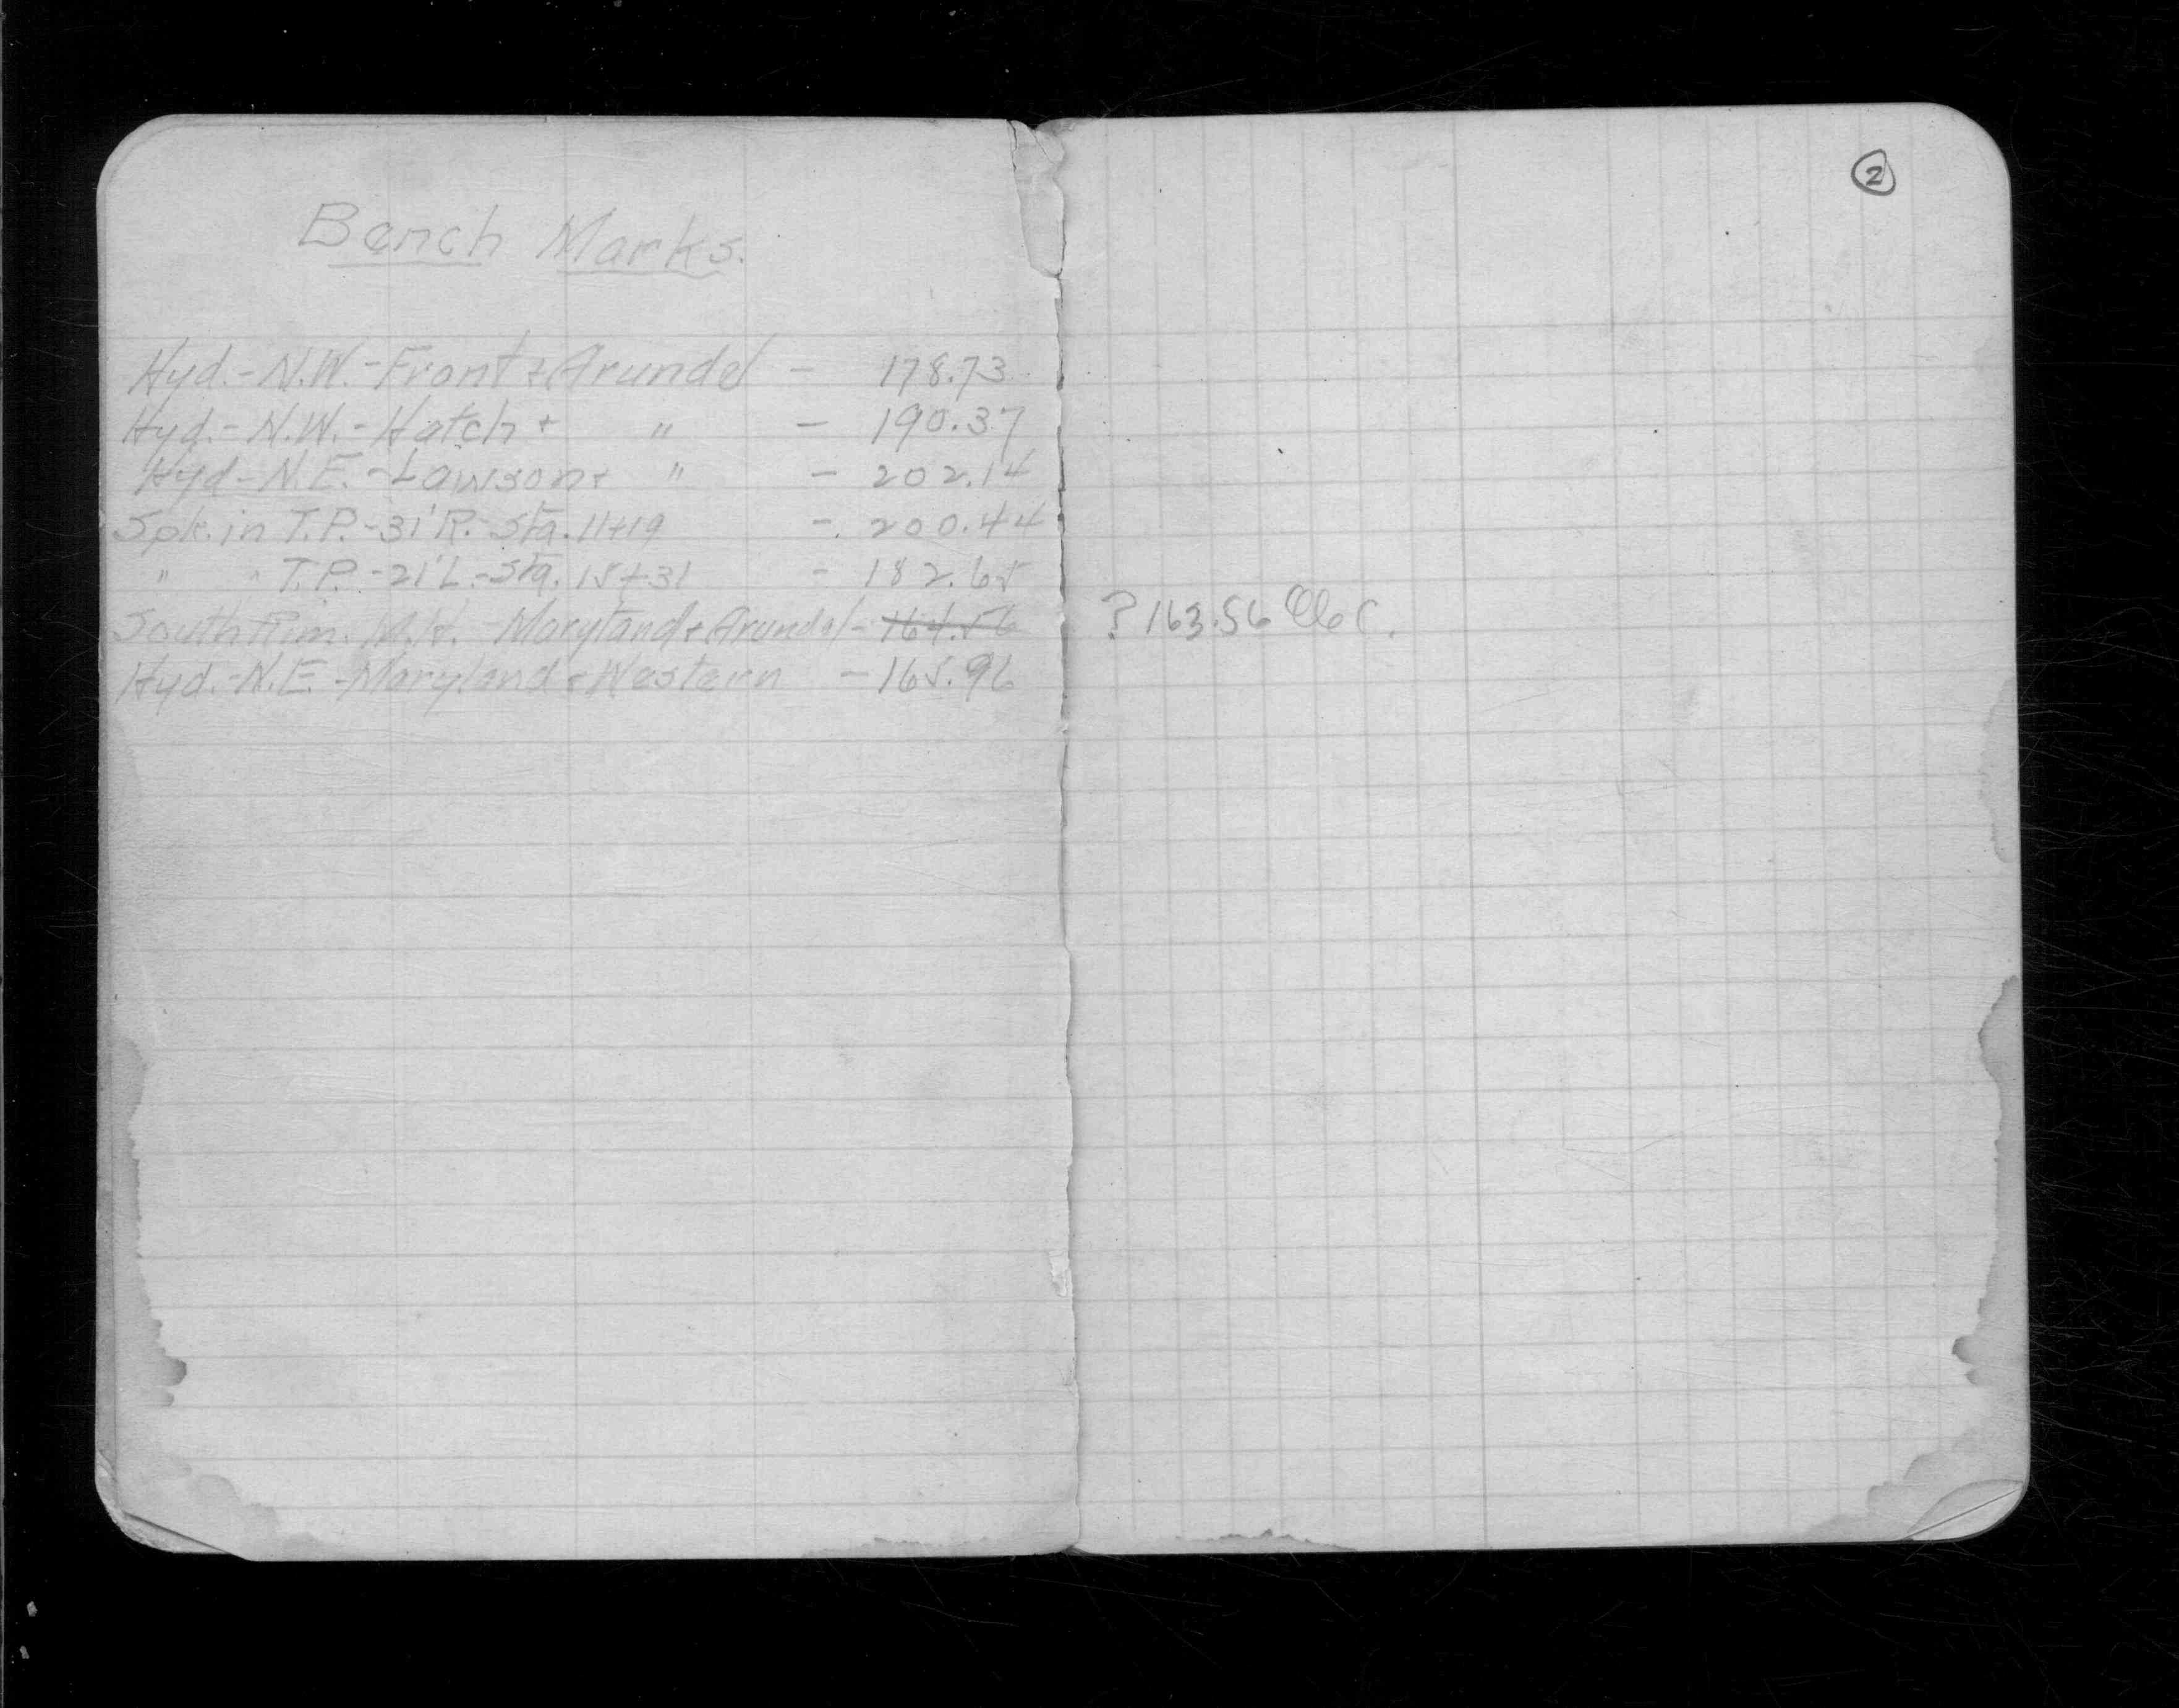 Bench Marks.
Hyd.-N.W.-Front + Arundel - 178.73
Hyd.-N.W.-Hatch + " - 190.37
Hyd-N.E.-Lawson + " - 202.14
Spk. in T.P.-31'R.-Sta. 11+19 - 200.44
" " T.P.-21'L.-Sta. 15+31 - 182.65
South Rim. M.H. - Maryland + Arundel - 164.56
Hyd.-N.E.-Maryland + Western - 165.96
2
? 163.56